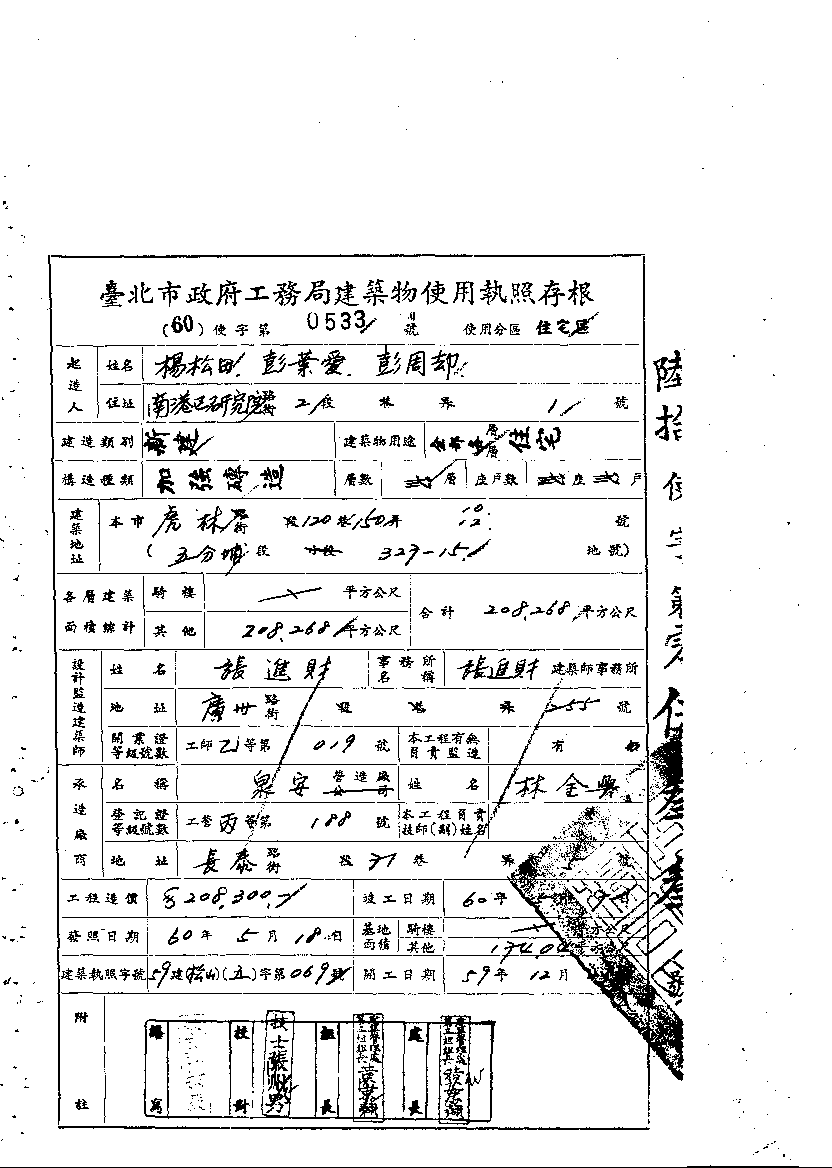 臺北市政府工務局建築物使用執照存根
(60)使字第 0533 號 使用分區 住宅區
起造人 姓名 楊松田 彭葉愛 彭周却
住址 南港区研究院路街 2段 巷 弄 1 號
建造類別 新建 建築物用途 層層住宅
構造種類 加強磚造 層數 弍層 座戶數 弍座弍戶
建築地址 本市 虎林路街 段120巷150弄 10 12 號
(五分埔段 小段 327-15 地號)
各層建築面積總計 騎樓 平方公尺 合計 208.268 平方公尺
其他 208.268 平方公尺
設計監造建築師 姓名 張進財 事務所名稱 張進財 建築師事務所
地址 廣州路街 段 巷 弄 255 號
開業證等級號數 工師乙等第 019 號 本工程有無負責監造 有
承造廠商 名稱 泉安 營造廠公司 姓名 林全興
登記證等級號數 工營丙等第 188 號 本工程負責技師(副)姓名
地址 長泰路街 段 31 巷 弄 5 號
工程造價 $208,300 竣工日期 60年
發照日期 60年 5月 18日 基地面積 騎樓 平方公尺
其他 134.04 平方公尺
建築執照字號 59建(松山)(五)字第069號 開工日期 59年 12月
附註
繕寫 校對 技士 組長 處長
陸拾使字第零伍叁叁號